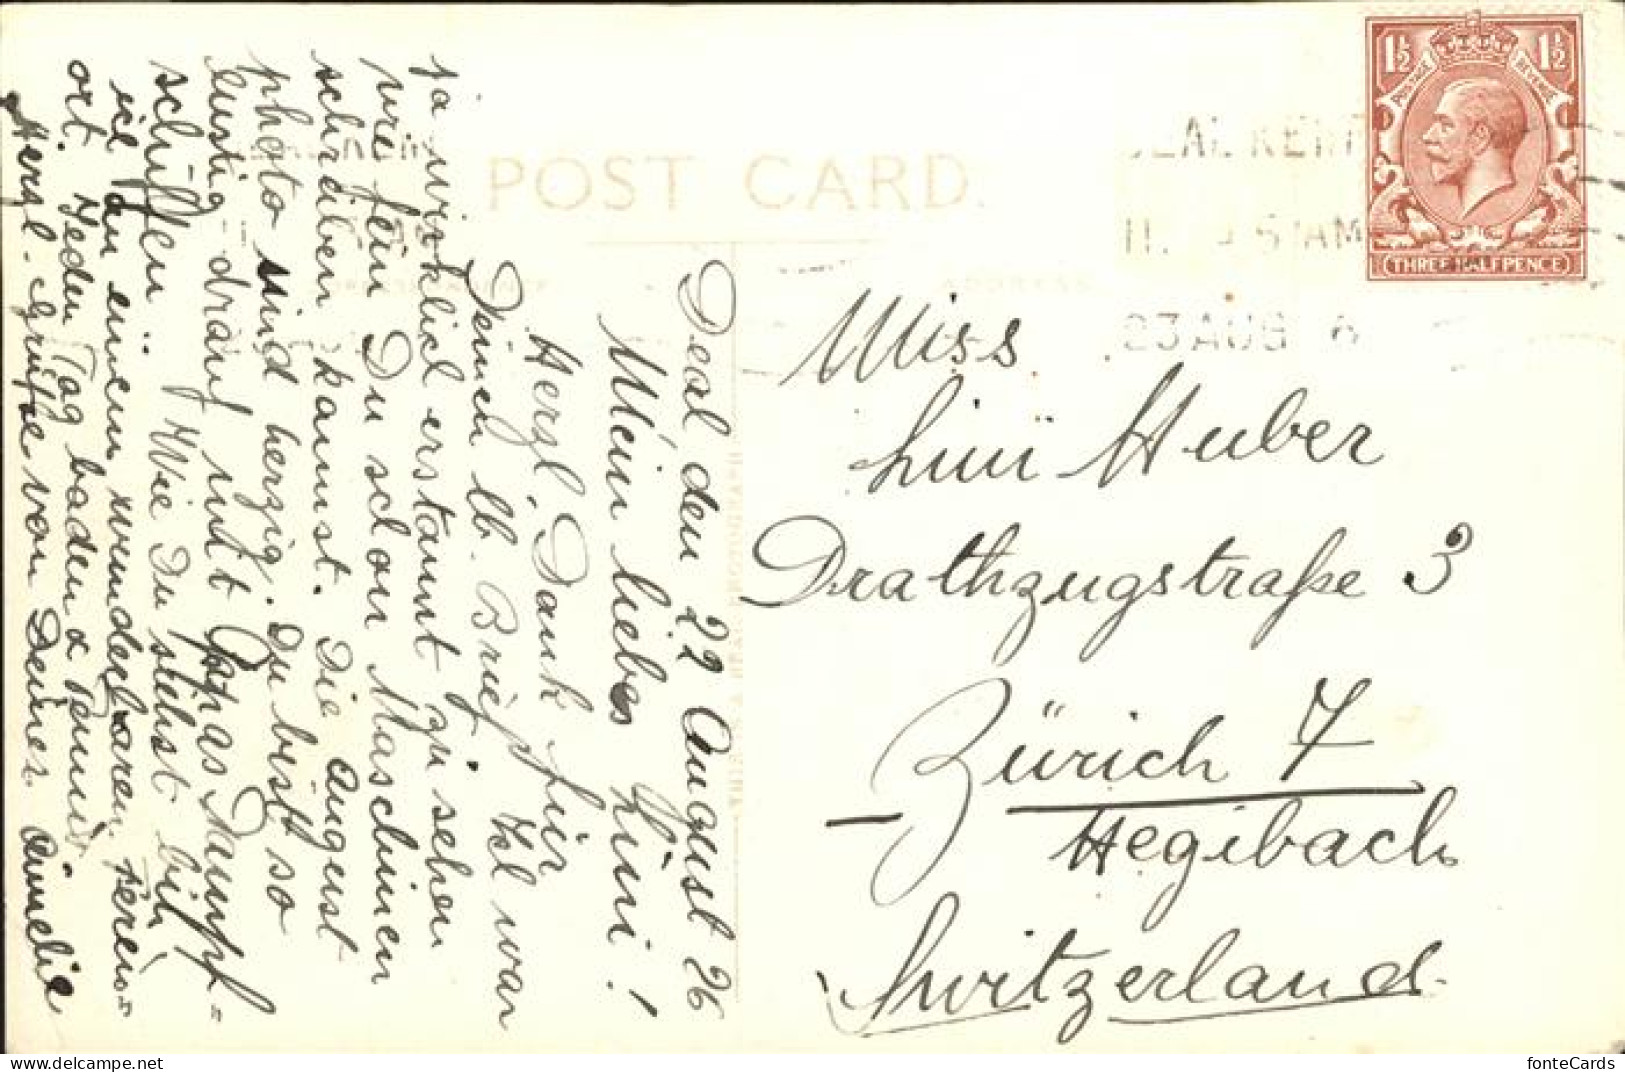 POST CARD.
ADDRESS
1½ 1½
POSTAGE REVENUE
THREE HALFPENCE
DEAL KENT
AM
23 AUG 6
Miss
Lini Huber
Drathzugstraße 3
Zürich 7
Hegibach
Switzerland.
Deal, den 22 August 26
Mein liebes Lini!
Herzl. Dank für
Deinen lb. Brief. Ich war
ja wirklich erstaunt zu sehen
wie fein Du schon Maschinen
schreiben kannst. Die August
photo sind herzig. Du bist so
lustig drauf und Papas Dampf-
schiffen. Wie Du siehst bin
ich an einem wunderbaren Ferien-
ort. Jeden Tag baden & Tennis.
Herzl. Grüsse von Deiner Amelie
fonteCards